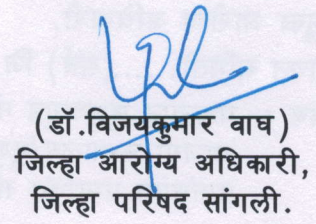 (डॉ.विजयकुमार वाघ)
जिल्हा आरोग्य अधिकारी,
जिल्हा परिषद सांगली.